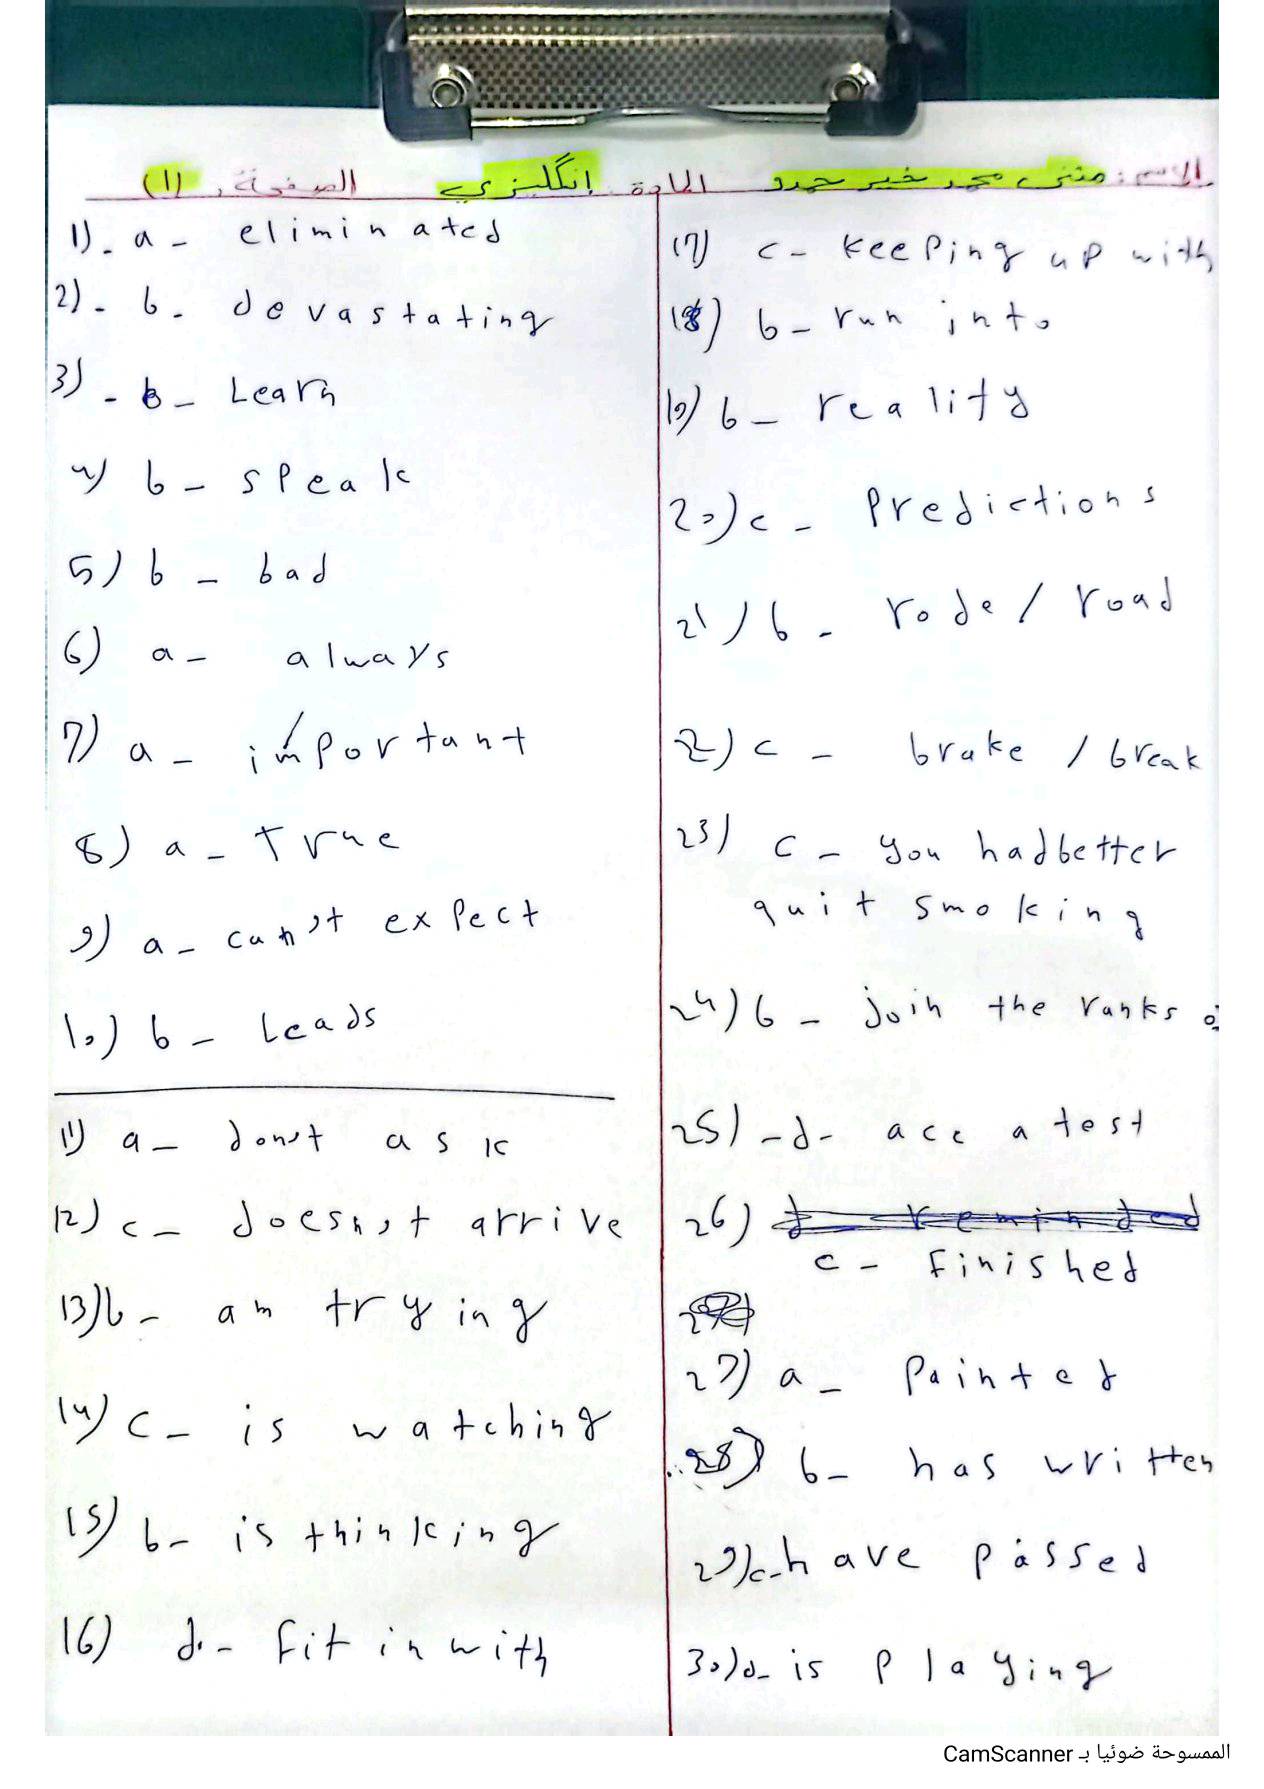 الاسم: مثنى محمد خير حمدو المادة: إنكليزي الصفحة: (1)
1)- a - eliminated
2)- b - devastating
3)- b - Learn
4) b - speak
5) b - bad
6) a - always
7) a - important
8) a - True
9) a - can't expect
10) b - Leads
11) a - don't ask
12) c - doesn't arrive
13) b - am trying
14) c - is watching
15) b - is thinking
16) d - fit in with
17) c - keeping up with
18) b - run into
19) b - reality
20) c - Predictions
21) b - rode / road
22) c - brake / break
23) c - you hadbetter
quit smoking
24) b - join the ranks of
25) - d - acc a test
26) d reminded
c - Finished
27) a - Painted
28) b - has written
29) c - have passed
30) a - is playing
الممسوحة ضوئيا بـ CamScanner